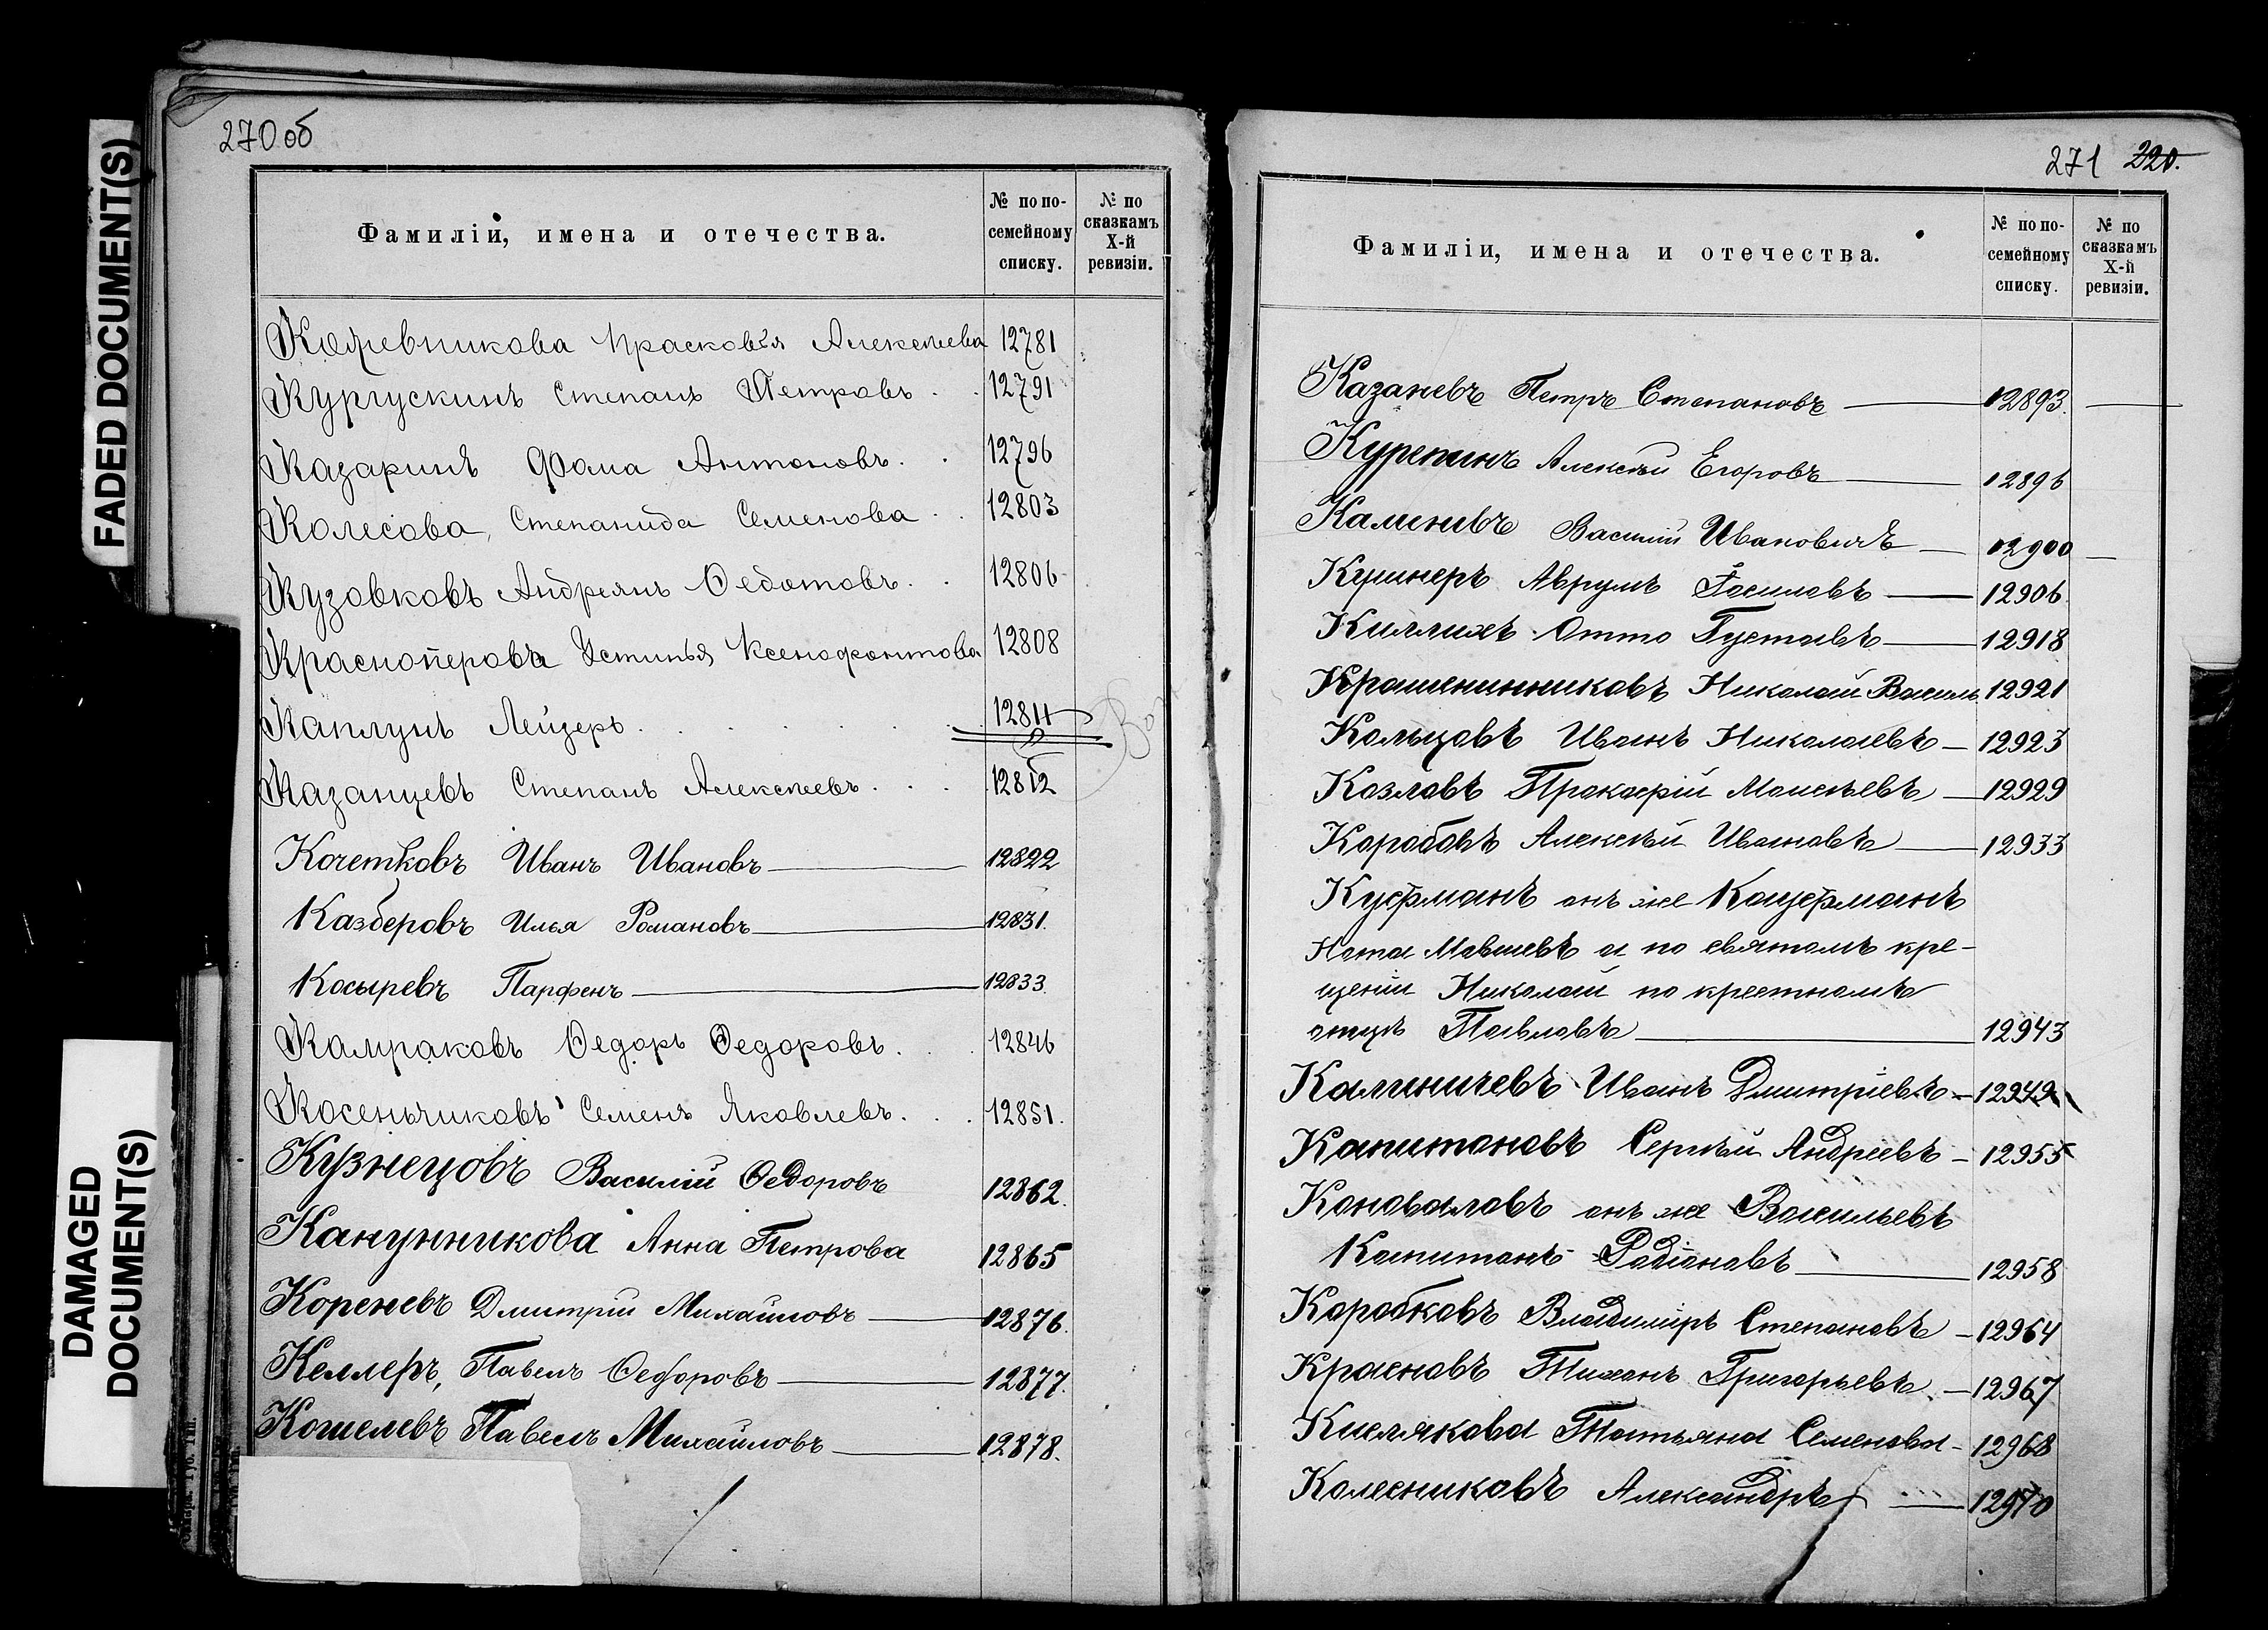 FADED DOCUMENT(S)
DAMAGED
DOCUMENT(S)
270 об
Фамиліи, имена и отечества.
№ по по-
семейному
списку.
№ по
сказкамъ
X-й
ревизіи.
Кожевникова Прасковья Алексѣева 12781
Кургускинъ Степанъ Петровъ 12791
Казаринъ Фома Антоновъ 12796
Колесова, Степанида Семенова 12803
Кузовковъ Андреянъ Ѳедотовъ 12806
Красноперова Устинья Ксенофонтова 12808
Каплунъ Лейзеръ 12811
Казанцевъ Степанъ Алексѣевъ 12812
Кочетковъ Иванъ Ивановъ 12822
Казберовъ Илья Романовъ 12831.
Косыревъ Парфенъ 12833.
Камраковъ Ѳедоръ Ѳедоровъ 12846
Косеньчиковъ Семенъ Яковлевъ 12851.
Кузнецовъ Василій Ѳедоровъ 12862.
Канунникова Анна Петрова 12865
Кореневъ Дмитрій Михайловъ 12876.
Келлеръ, Павелъ Ѳедоровъ 12877.
Кошелевъ Павелъ Михайловъ 12878.
271 220.
Фамиліи, имена и отечества.
№ по по-
семейному
списку.
№ по
сказкамъ
X-й
ревизіи.
Казаневъ Петръ Степановъ 12893.
Курепинъ Алексѣй Егоровъ 12896
Каменевъ Василій Ивановичъ 12900
Кушнеръ Аврумъ 12906.
Киллихъ Отто Густавъ 12918
Крашенинниковъ Николай Василь 12921
Кольцовъ Иванъ Николаевъ 12923
Козловъ Прокофій Моисѣевъ 12929
Коробовъ Алексѣй Ивановъ 12933
Куфманъ онъ же Кауфманъ
Нота Мовшевъ а по святомъ кре-
щеніи Николай по крестномъ
отцѣ Павловъ 12943
Калиничевъ Иванъ Дмитріевъ 12949
Капитоновъ Сергѣй Андреевъ 12955
Коноваловъ онъ же Васильевъ
Капитонъ Радіоновъ 12958
Коробковъ Владиміръ Степановъ 12964
Красновъ Тихонъ Григорьевъ 12967
Кислякова Татьяна Семенова 12968
Колесниковъ Александръ 12970